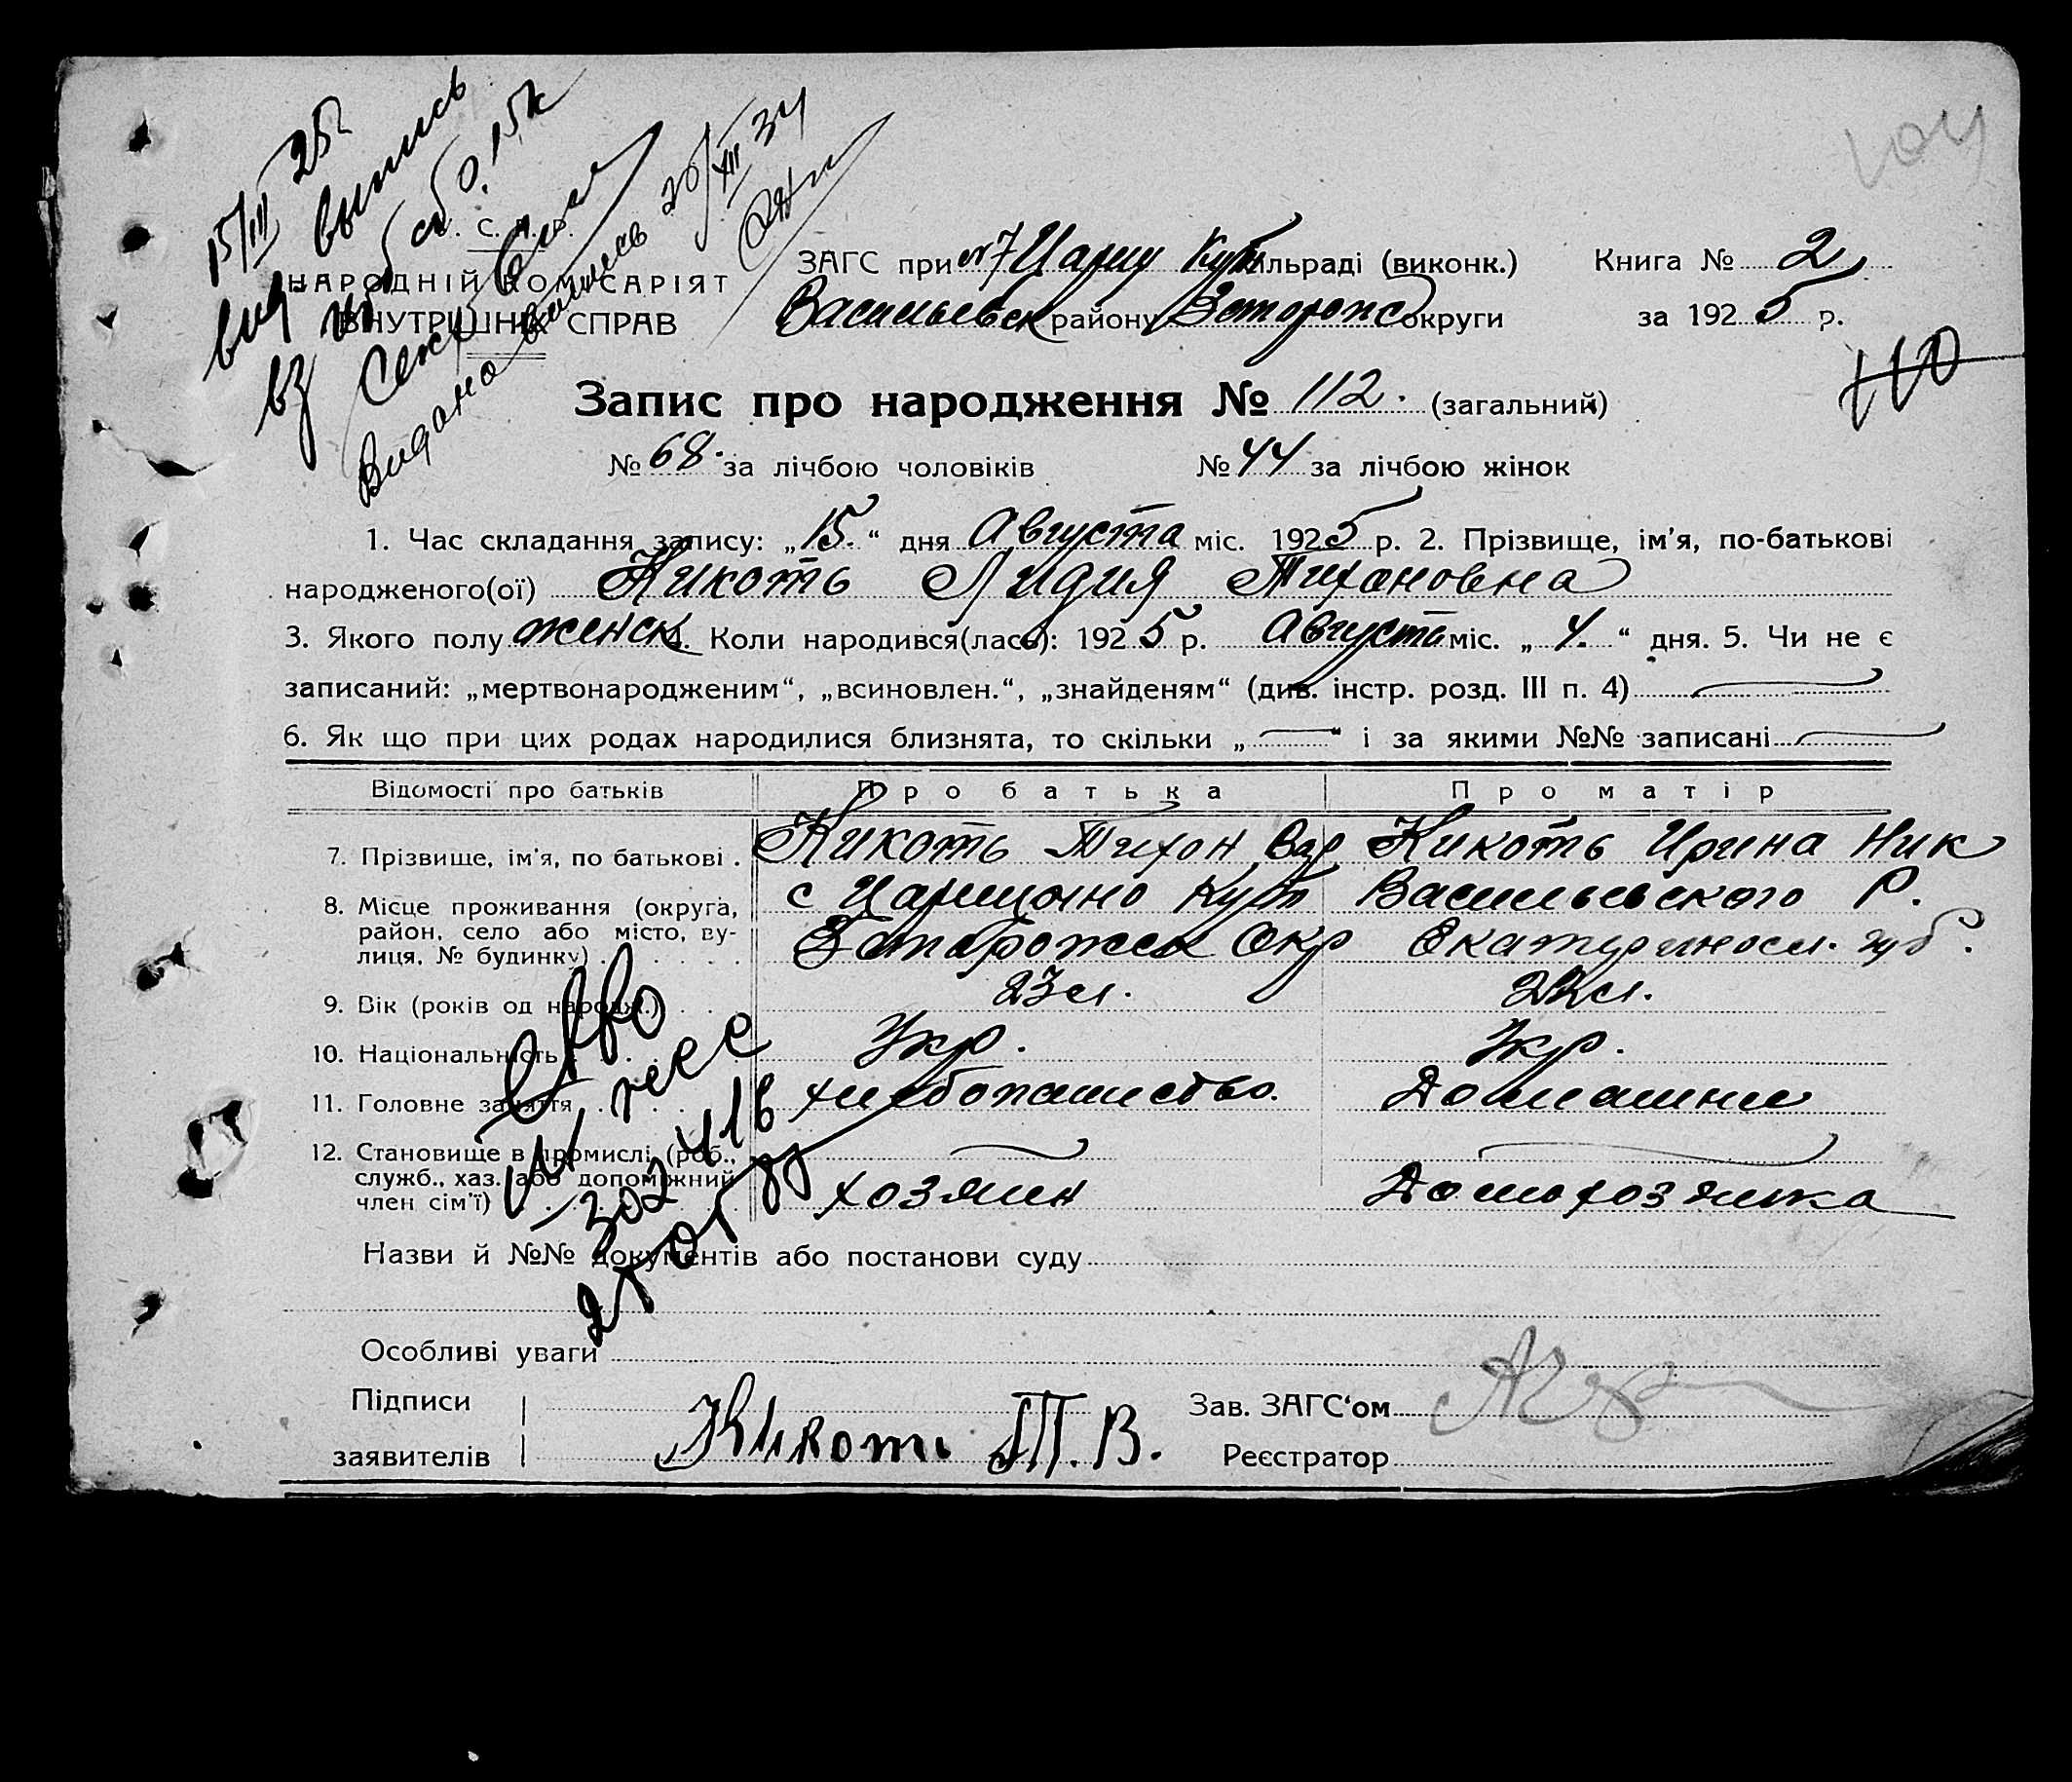 15/III 25г
выпись
0.15к
Видана выпись 20/XII 34
104
У. С. Р. Р.
НАРОДНІЙ КОМІСАРІЯТ
ВНУТРІШНІХ СПРАВ
ЗАГС при №7 Цариц Кут сільраді (виконк.)
Васильевск району Запорож округи
Книга № 2
за 1925 р.
110
Запис про народження № 112. (загальний)
№ 68. за лічбою чоловіків № 44 за лічбою жінок
1. Час складання запису: „15.“ дня Августа міс. 1925 р. 2. Прізвище, ім’я, по-батькові
народженого(ої) Кикоть Лидия Тихоновна
3. Якого полу женск 4. Коли народився(лась): 1925 р. Августа міс. „4.“ дня. 5. Чи не є
записаний: „мертвонародженим“, „всиновлен.“, „знайденям“ (див. інстр. розд. III п. 4)
6. Як що при цих родах народилися близнята, то скільки „—“ і за якими №№ записані
Відомості про батьків Про батька Про матір
7. Прізвище, ім’я, по батькові. Кикоть Тихон Кикоть Ирина Ник
8. Місце проживання (округа, с Царицыно Кут Васильевского Р.
район, село або місто, ву-
лиця, № будинку) Запорожск Окр Екатеринosл. губ.
9. Вік (років од народж.) 23 л. 22 л.
10. Національність Укр. Укр.
11. Головне заняття хлебопашество. Домашни
12. Становище в промислі (роб.,
служб., хаз. або допоміжний хозяин Домохозяйка
член сім’ї)
Назви й №№ документів або постанови суду
Особливі уваги
Підписи
заявителів Кикоть Т. В.
Зав. ЗАГС‘ом
Реєстратор